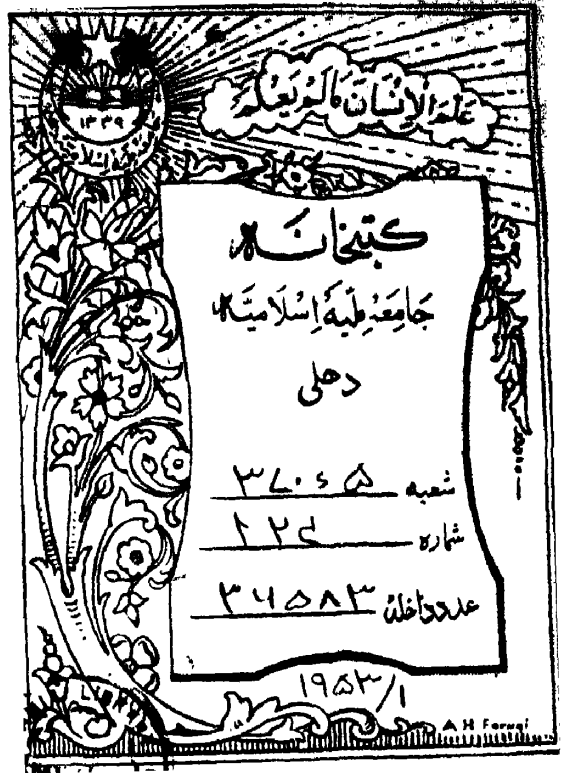 ۱۳۳۹
عَلَّمَ الْاِنْسَانَ مَالَمْ يَعْلَمْ
کتبخانہ
جامعہ ملیہ اسلامیہ
دهلی
شعبہ ۳۷۰۶۵
شمارہ
عدد داخلہ ۳۶۵۸۳
۱۹۵۳/۱
A H Faruqi